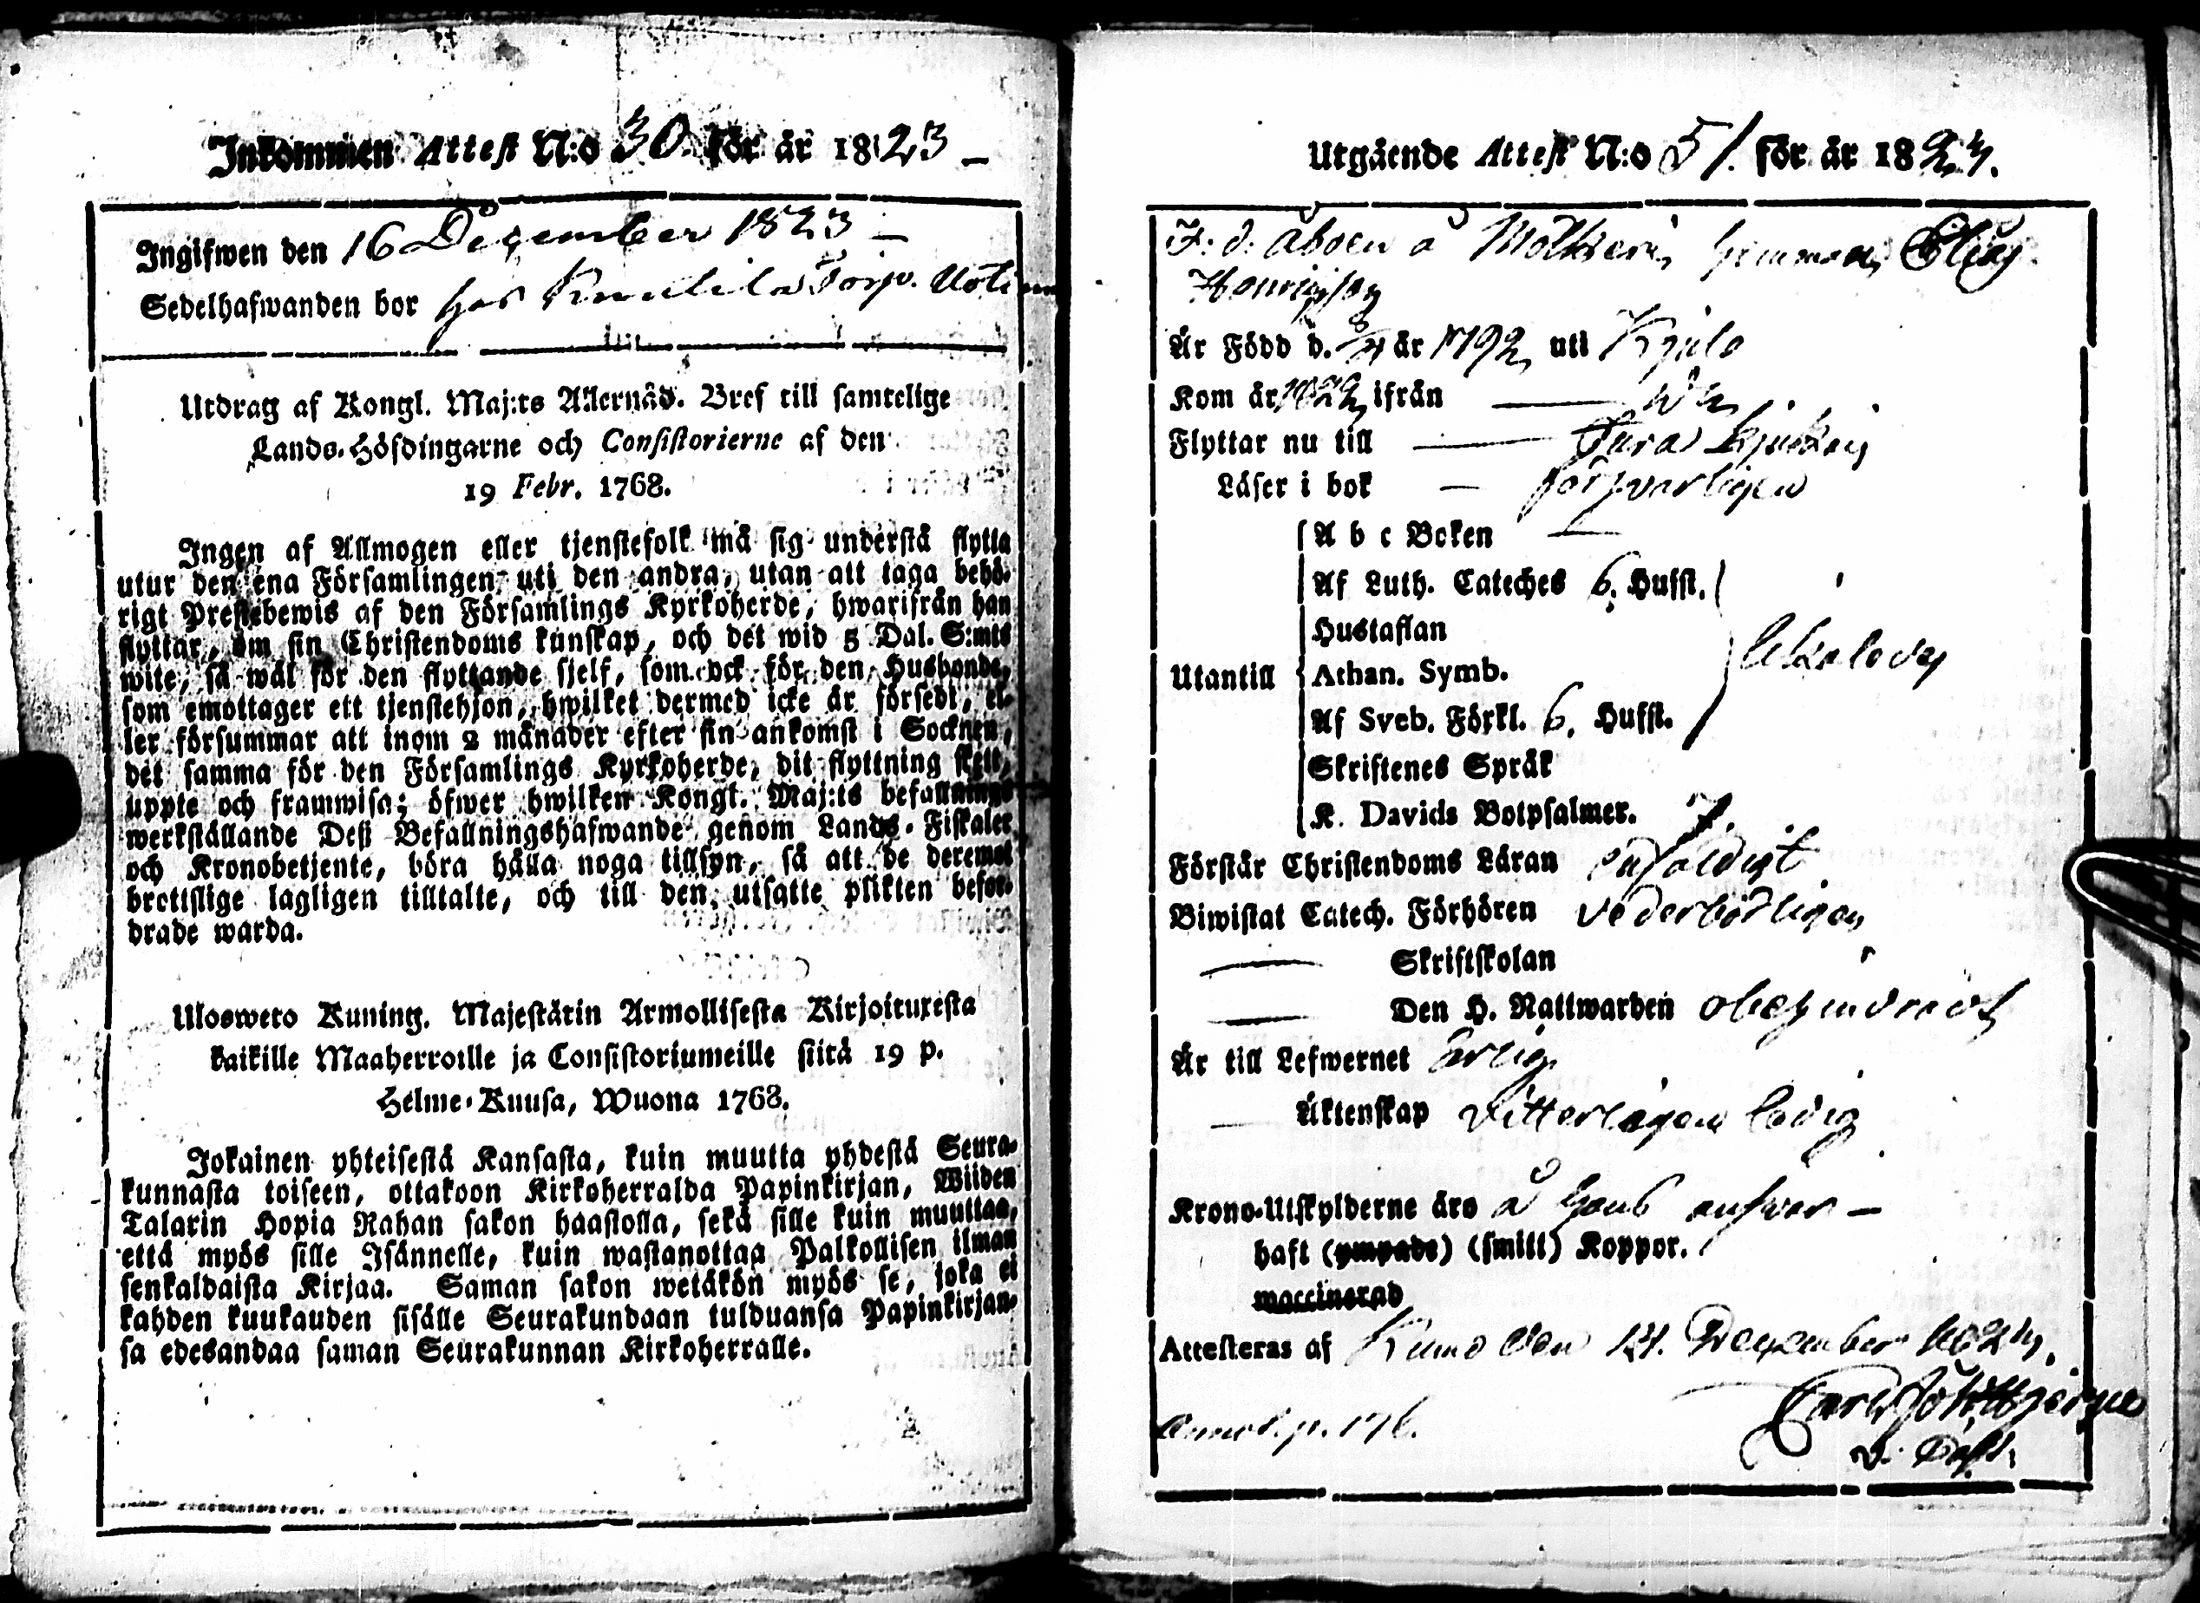 Inkommen Attest N:o 30 för år 1823
Ingifwen den 16 December 1823
Sedelhafwanden bor hos Torp.
Utdrag af Kongl. Maj:ts Allernåd. Bref till samtelige
Lands-Höfdingarne och Consistorierne af den
19 Febr. 1768.
Ingen af Allmogen eller tjenstefolk må sig understå flytta
utur den ena Församlingen uti den andra, utan att taga behö-
rigt Prestebewis af den Församlings Kyrkoherde, hwarifrån han
flyttar, om sin Christendoms kunskap, och det wid 5 Dal. S:mts
wite, så wäl för den flyttande sjelf, som ock för den Husbonde,
som emottager ett tjenstehjon, hwilket dermed icke är försedt, el-
ler försummar att inom 2 månader efter sin ankomst i Socknen,
det samma för den Församlings Kyrkoherde, dit flyttning skett,
uppte och framwisa; öfwer hwilken Kongl. Maj:ts befallnings
werkställande Dess Befallningshafwande genom Lands-Fiskaler
och Kronobetjente, böra hålla noga tillsyn, så att de deremot
brottslige lagligen tilltalte, och till den utsatte plikten befor-
drade warda.
Uloswero Kuning. Majestätin Armollisesta Kirjoituxesta
kaikille Maaherroille ja Consistoriumeille siitä 19 p.
Helme-Kuusa, Wuona 1768.
Jokainen yhteisestä Kansasta, kuin muutta yhdestä Seura-
kunnasta toiseen, ottakoon Kirkoherralda Papinkirjan, Wiiden
Talarin Hopia Rahan sakon haastolla, sekä sille kuin muuttaa,
että myös sille Isännelle, kuin wastanottaa Palkollisen ilman
senkaldaista Kirjaa. Saman sakon wetäkön myös se, joka ei
kahden kuukauden sisälle Seurakundaan tulduansa Papinkirjan-
sa edesandaa saman Seurakunnan Kirkoherralle.
Utgående Attest N:o 51. för år 1823.
F. d. åboen å
Henricsson
Är Född d. år 1792 uti Kjulo
Kom år 1822 ifrån
Flyttar nu till
Läser i bok — försvarligen
A b c Boken —
Af Luth. Cateches 6. Hufst.
Hustaflan
Utantill Athan. Symb.
Af Sveb. Förkl. 6. Hufst.
Skriftenes Språk
K. Davids Botpsalmer. 7.
Förstår Christendoms Läran enfaldigt
Biwistat Catech. Förhören vederbörligen
— Skriftskolan
— Den H. Nattwarden obehindradt
Är till Lefwernet ärlig
— Äktenskap vitterligen ledig
Krono-Utskylderne äro å hans answar —
haft (ympade) (smitt) Koppor.
waccinerad
Attesteras af Kumo den December 1823.
Annot. p. 176.